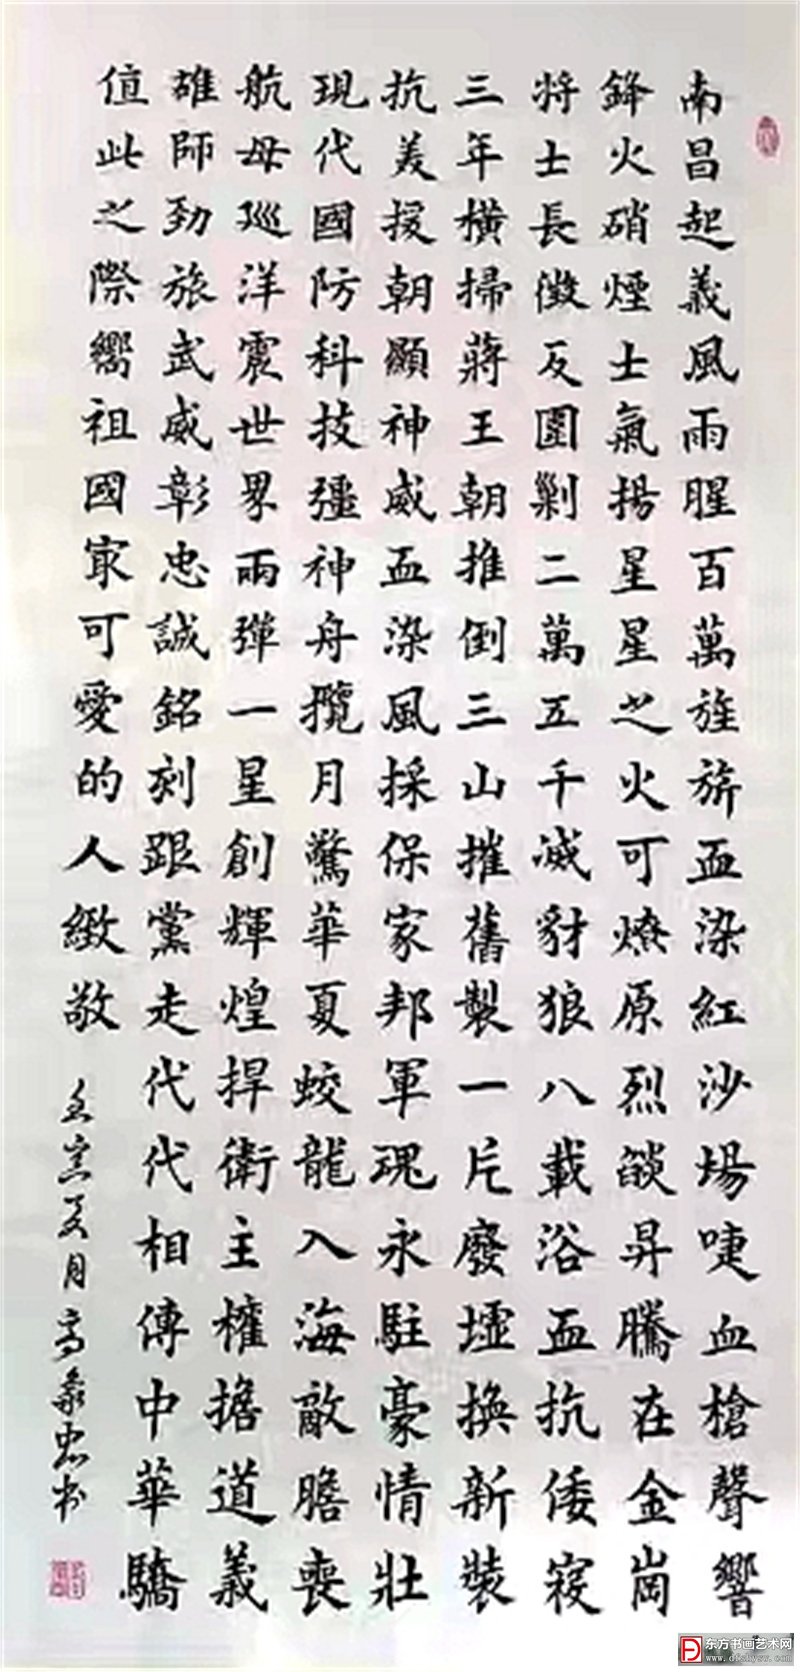 南昌起義風雨腥百萬旌旂血染紅沙場啑血槍聲響
鋒火硝煙士氣揚星星之火可燎原烈燄昇騰在金崗
將士長徵反圍剿二萬五千滅豺狼八載浴血抗倭寇
三年橫掃蔣王朝推倒三山摧舊製一片廢墟換新裝
抗美援朝顯神威血染風採保家邦軍魂永駐豪情壯
現代國防科技彊神舟攬月驚華夏蛟龍入海敵膽喪
航母巡洋震世界兩彈一星創輝煌捍衛主權擔道義
雄師勁旅武威彰忠誠銘刻跟黨走代代相傳中華驕
值此之際嚮祖國家可愛的人緻敬
夏月高忠书
东方书画艺术网
www.dfshysw.com